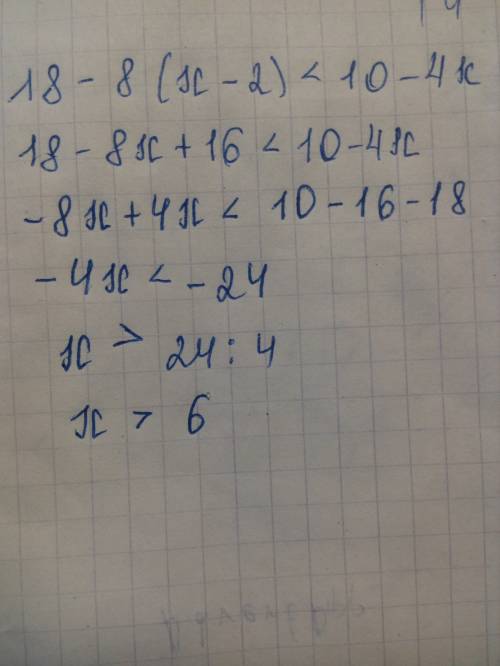 18 - 8 (x - 2) < 10 - 4x
18 - 8x + 16 < 10 - 4x
- 8x + 4x < 10 - 16 - 18
- 4x < - 24
x > 24 : 4
x > 6